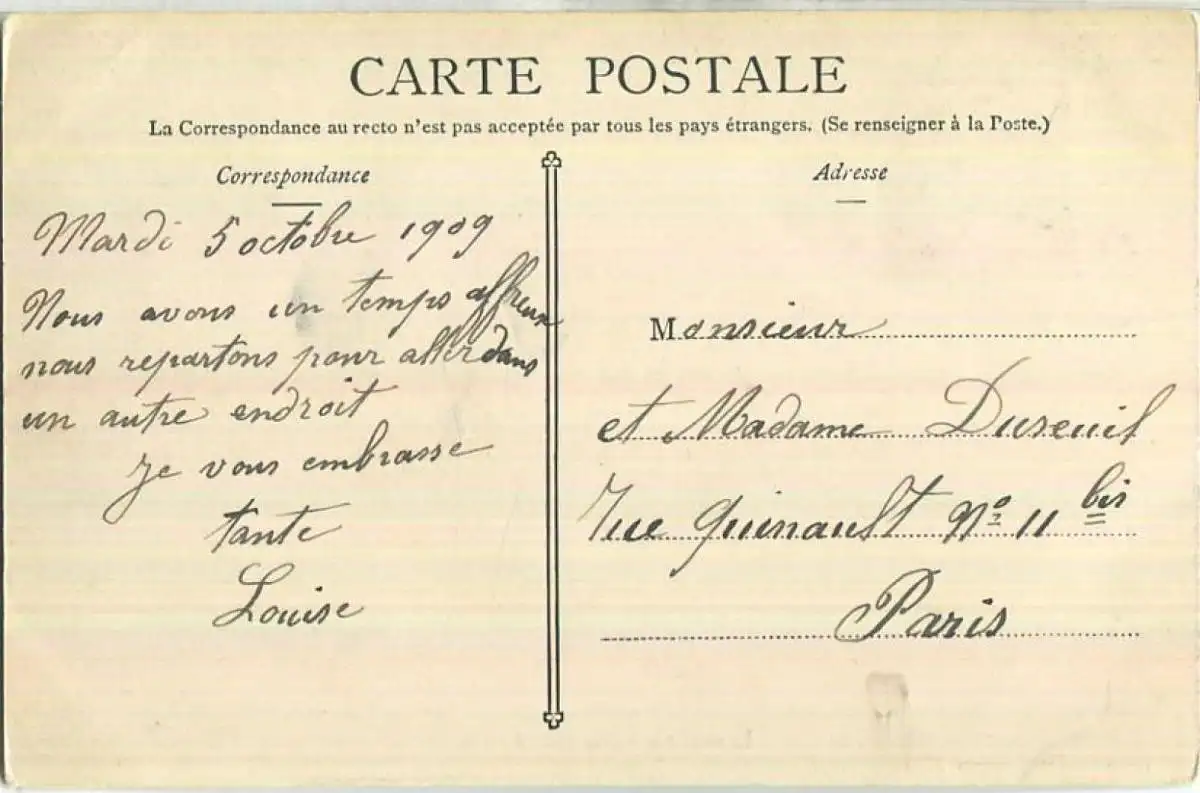 CARTE POSTALE
La Correspondance au recto n'est pas acceptée par tous les pays étrangers. (Se renseigner à la Poste.)
Correspondance
Mardi 5 octobre 1909
Nous avons un temps affreux
nous repartons pour aller dans
un autre endroit
je vous embrasse
tante
Louise
Adresse
Monsieur
et Madame Dureuil
rue Quinault No 11 bis
Paris